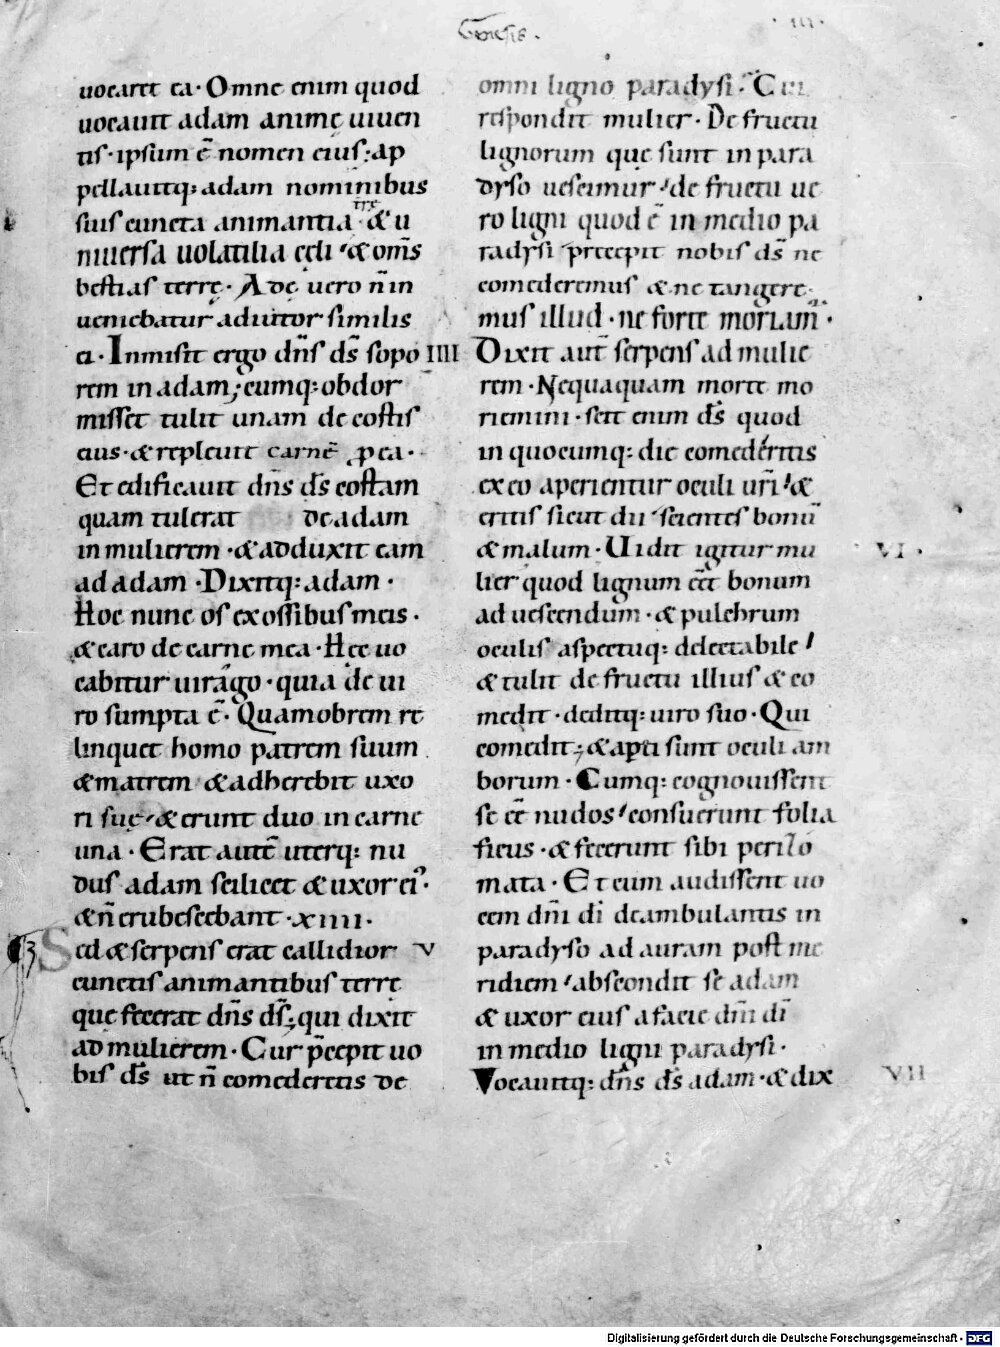 Genesis.
·III·
uocaret ea· Omne enim quod
uocauit adam animę uiuen
tis· ipsum ē nomen eius; ap
pellauitq; adam nominibus
suis cuncta animantia trę & u
niuersa uolatilia cęli & om̄s
bestias terrę· Adę uero n̄ in
ueniebatur adiutor similis
ei· Inmisit ergo dn̄s ds̄ sopo
rem in adam; cumq; obdor
misset tulit unam de costis
eius· & repleuit carnē p ea·
Et edificauit dn̄s ds̄ costam
quam tulerat de adam
in mulierem· & adduxit eam
ad adam· Dixitq; adam·
Hoc nunc os ex ossibus meis·
& caro de carne mea· Hęc uo
cabitur uirago· quia de ui
ro sumpta ē· Quamobrem re
linquet homo patrem suum
& matrem & adherebit uxo
ri suę· & erunt duo in carne
una· Erat autē uterq; nu
dus adam scilicet & uxor ei᾽·
& n̄ erubescebant· XIIII·
Sed & serpens erat callidior V
cunctis animantibus terrę
quę fecerat dn̄s ds̄; qui dixit
ad mulierem· Cur p̄cepit uo
bis ds̄ ut n̄ comederetis de
omni ligno paradysi· Cui
respondit mulier· De fructu
lignorum quę sunt in para
dyso uescimur· de fructu ue
ro ligni quod ē in medio pa
radysi precepit nobis ds̄ ne
comederemus & ne tangere
mus illud· ne forte moriam̄·
IIII Dixit aut̄ serpens ad mulie
rem· Nequaquam morte mo
riemini· scit enim ds̄ quod
in quocumq; die comederitis
ex eo aperientur oculi ur̄i & 
eritis sicut dii scientes bonū
& malum· Uidit igitur mu VI·
lier quod lignum eēt bonum
ad uescendum· & pulchrum
oculis aspectuq; delectabile
& tulit de fructu illius & co
medit· deditq; uiro suo· Qui
comedit; & apti sunt oculi am
borum· Cumq; cognouissent
se eē nudos consuerunt folia
ficus· & fecerunt sibi perizo
mata· Et cum audissent uo
cem dn̄i di deambulantis in
paradyso ad auram post me
ridiem abscondit se adam
& uxor eius a facie dn̄i di
in medio ligni paradysi·
Vocauitq; dn̄s ds̄ adam· & dix VII
Digitalisierung gefördert durch die Deutsche Forschungsgemeinschaft · DFG